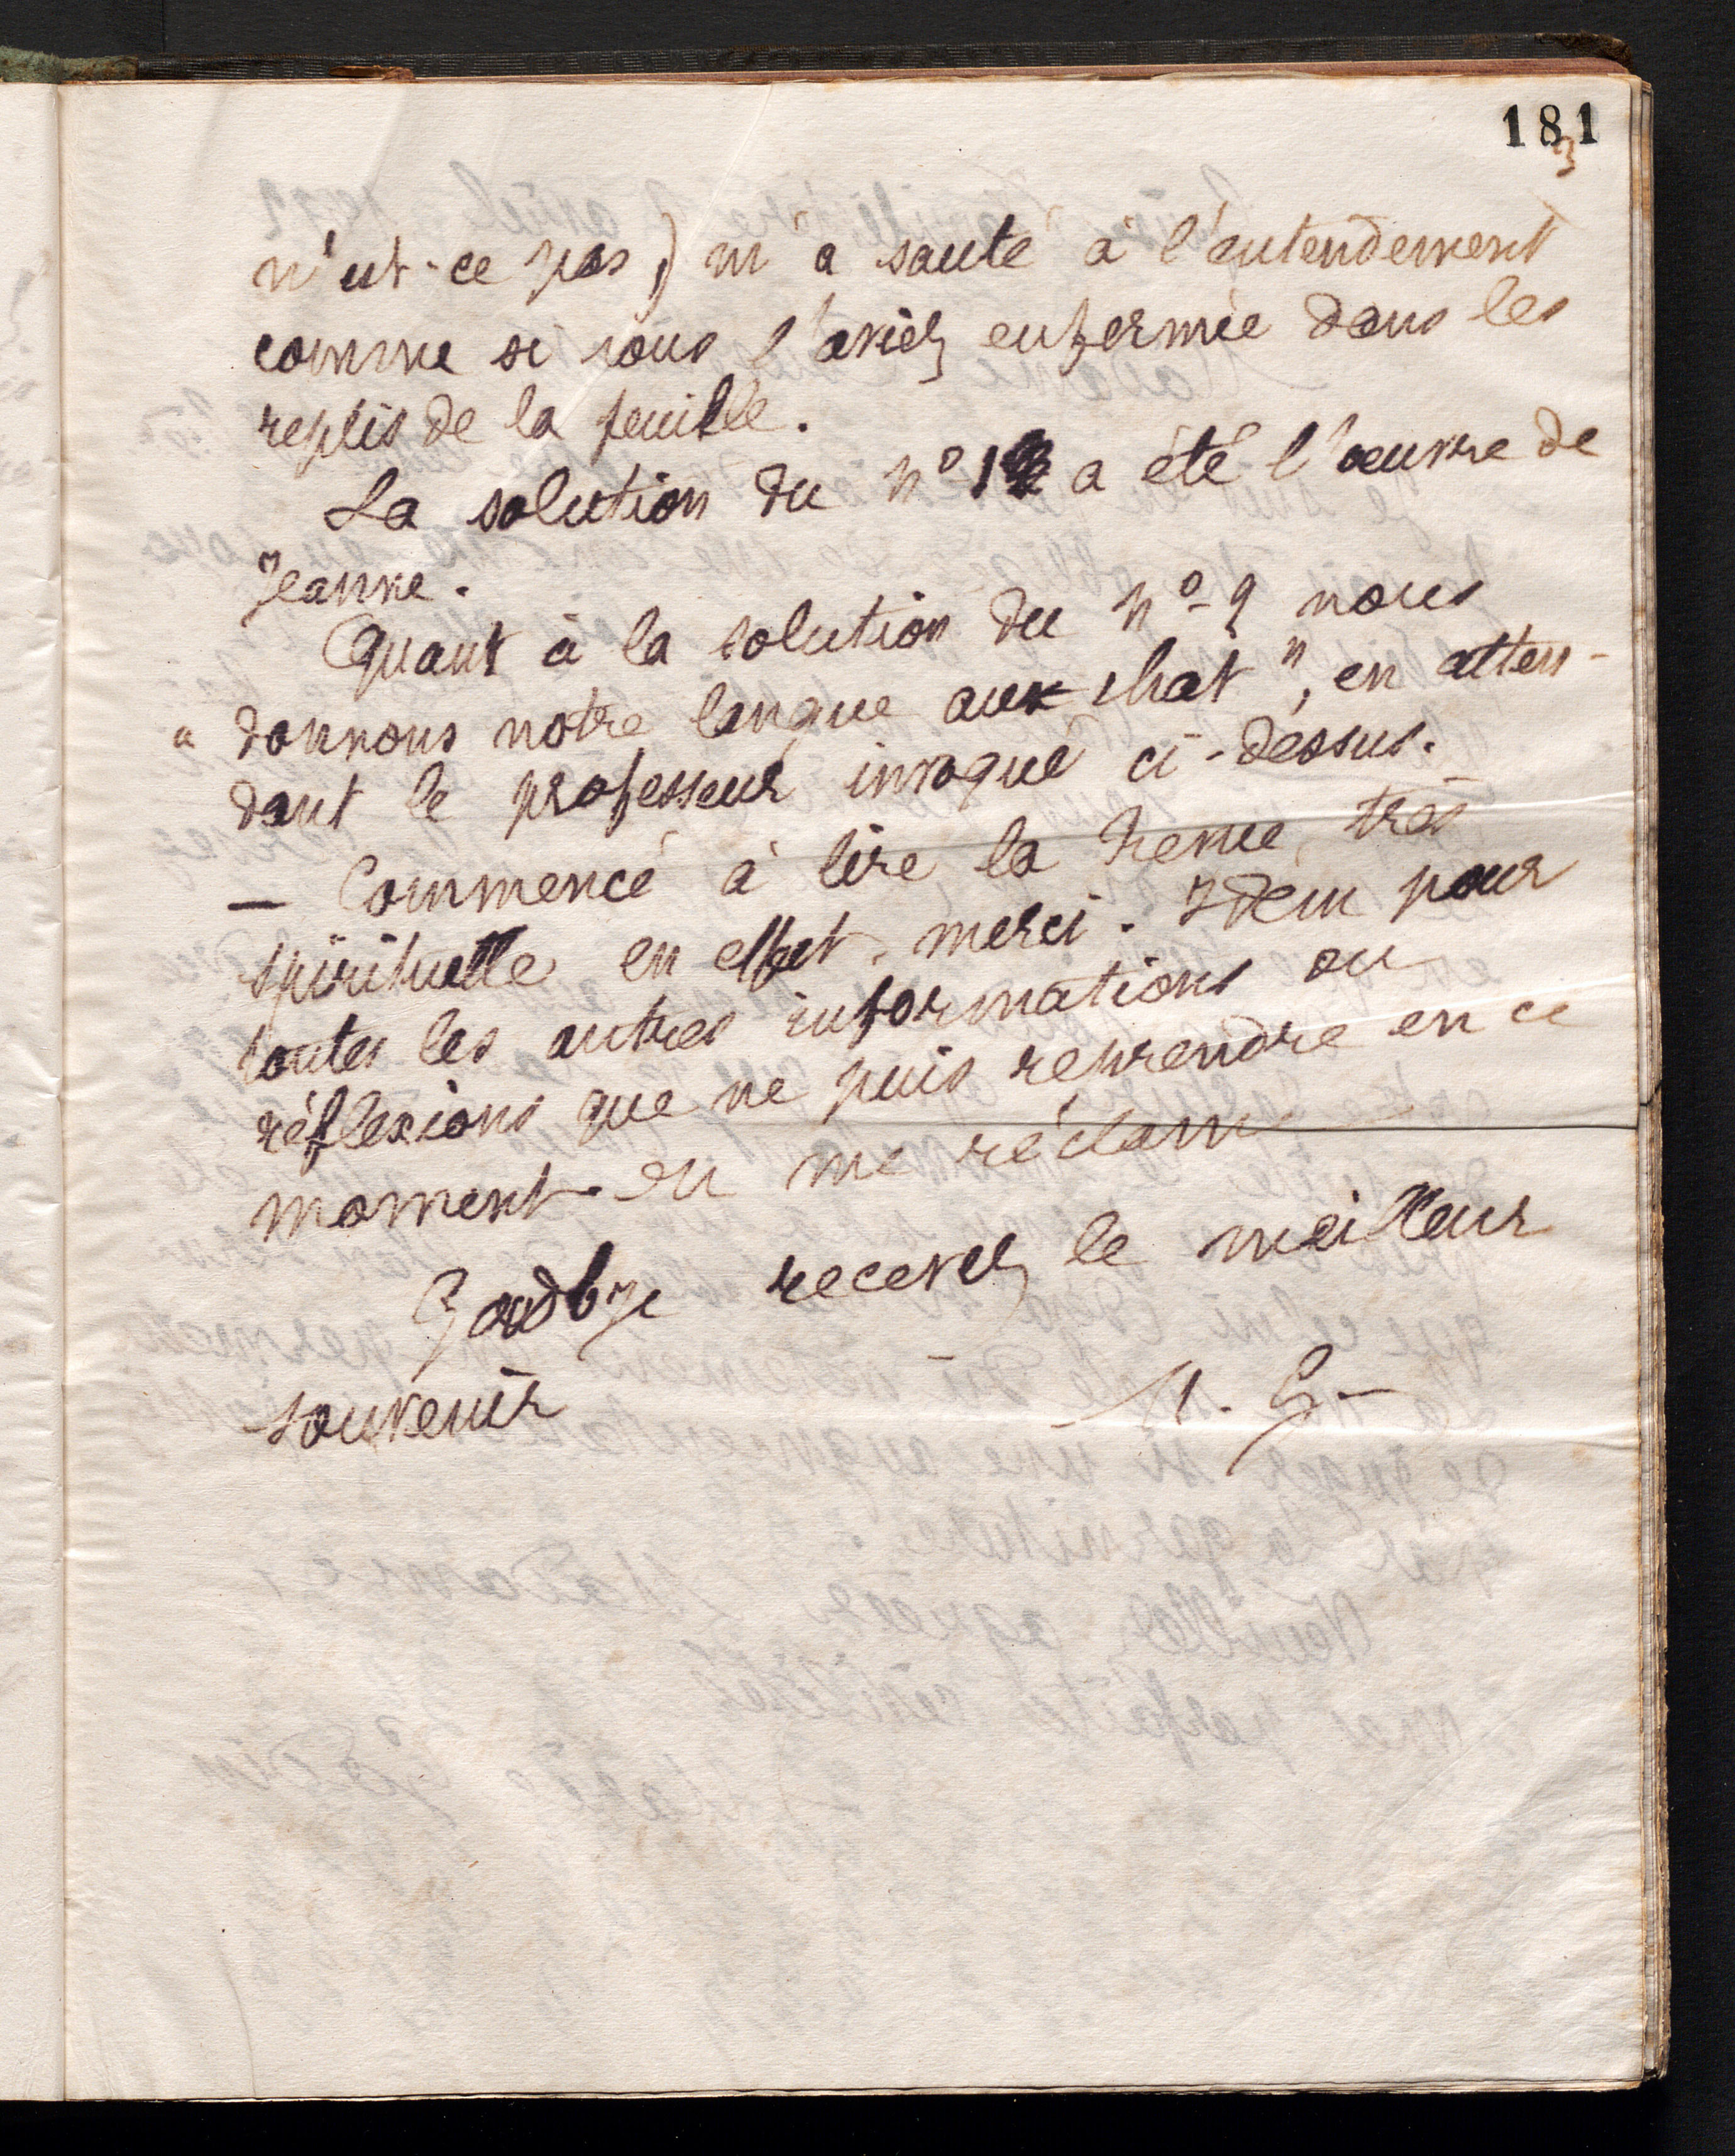 181
3
n'est-ce pas) m'a sauté à l'entendement
comme si vous l'aviez enfermée dans les
replis de la feuille.
La solution du n° 1 a été l'œuvre de
Jeanne.
Quant à la solution du n° 2 nous
" donnons notre langue aux chat", en atten-
dant le professeur invoqué ci-dessus.
— Commencé à lire la Revue, très
spirituelle en effet, merci. Idem pour
toutes les autres informations ou
réflexions que ne puis reprendre en ce
moment. On me réclame
Goodbye recevez le meilleur
souvenir
M. G-